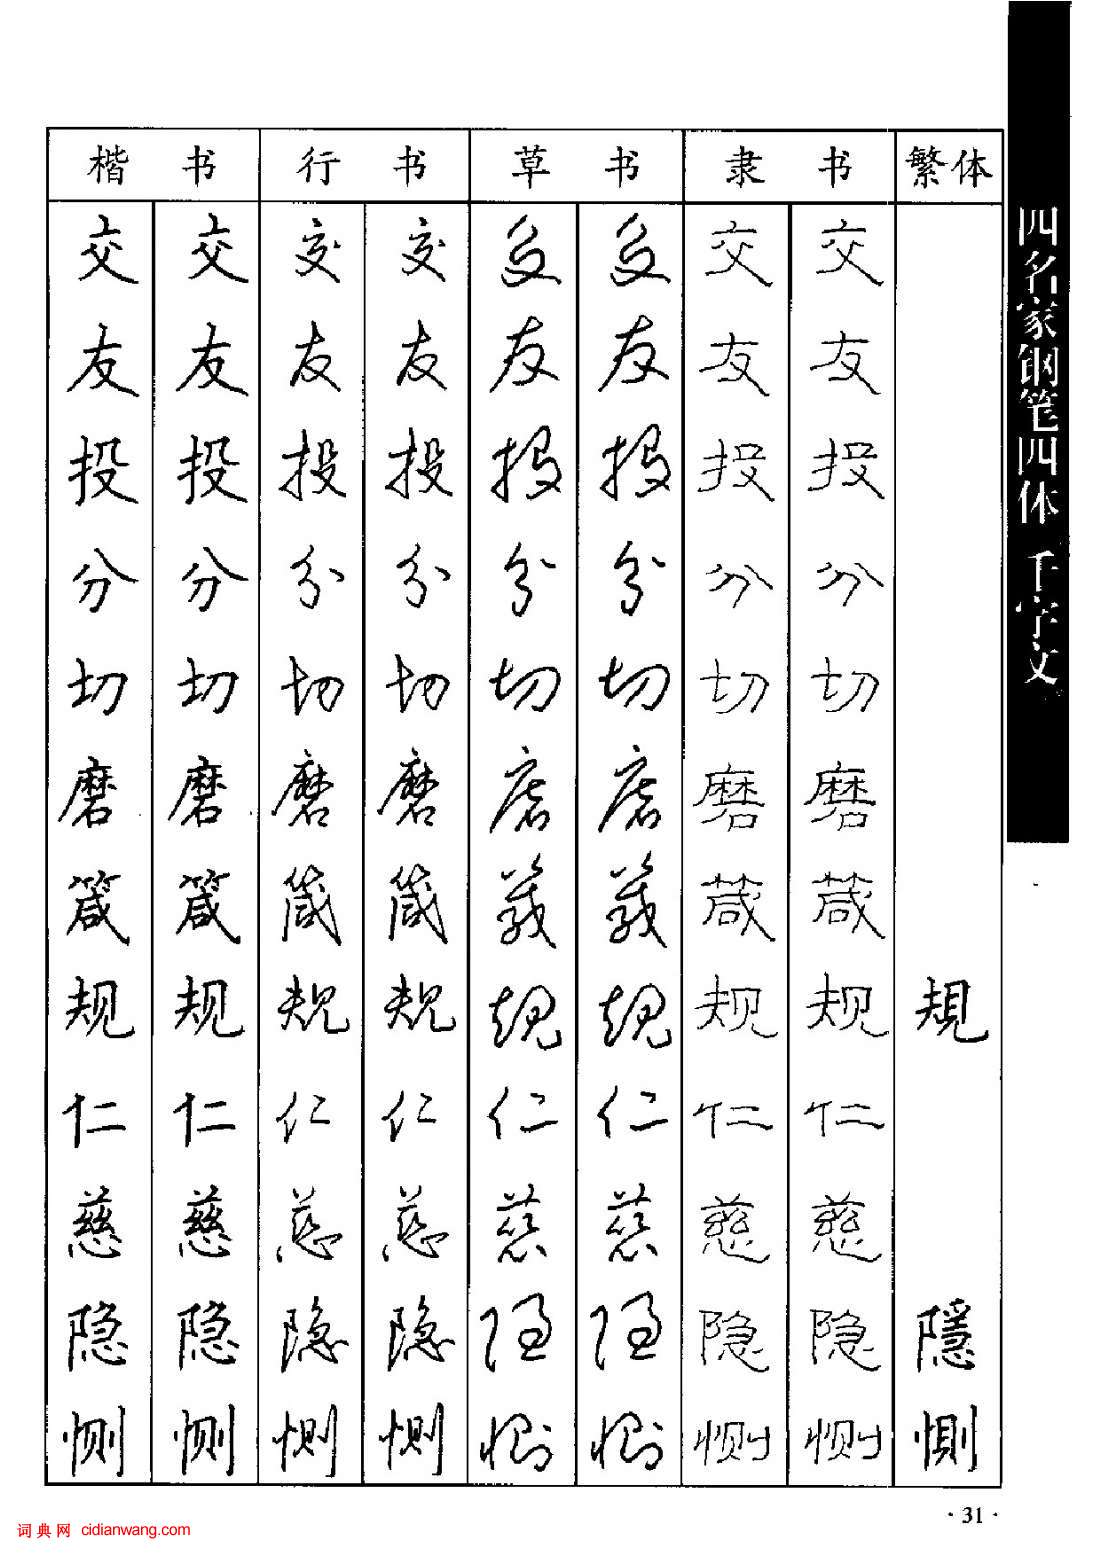 楷书 行书 草书 隶书 繁体
交 交 交 交 交 交 交 交
友 友 友 友 友 友 友 友
投 投 投 投 投 投 投 投
分 分 分 分 分 分 分 分
切 切 切 切 切 切 切 切
磨 磨 磨 磨 磨 磨 磨 磨
箴 箴 箴 箴 箴 箴 箴 箴
规 规 规 规 规 规 规 规 規
仁 仁 仁 仁 仁 仁 仁 仁
慈 慈 慈 慈 慈 慈 慈 慈
隐 隐 隐 隐 隐 隐 隐 隐 隱
恻 恻 恻 恻 恻 恻 恻 恻 惻
四名家钢笔四体 千字文
·31·
词典网 cidianwang.com